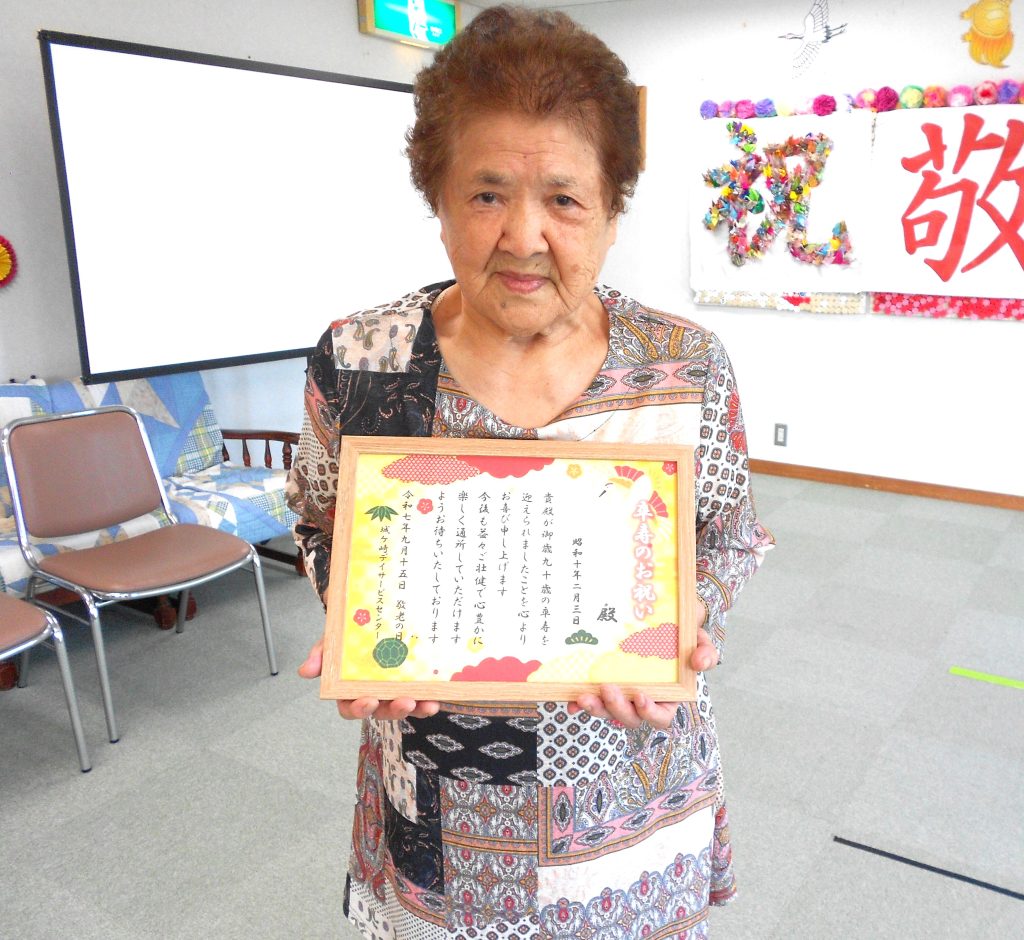 祝
敬
卒寿のお祝い
殿
昭和十年二月三日
貴殿が御歳九十歳の卒寿を
迎えられましたことを心より
お喜び申し上げます
今後も益々ご壮健で心豊かに
楽しく通所していただけます
ようお待ちいたしております
令和七年九月十五日 敬老の日
城ケ崎デイサービスセンター